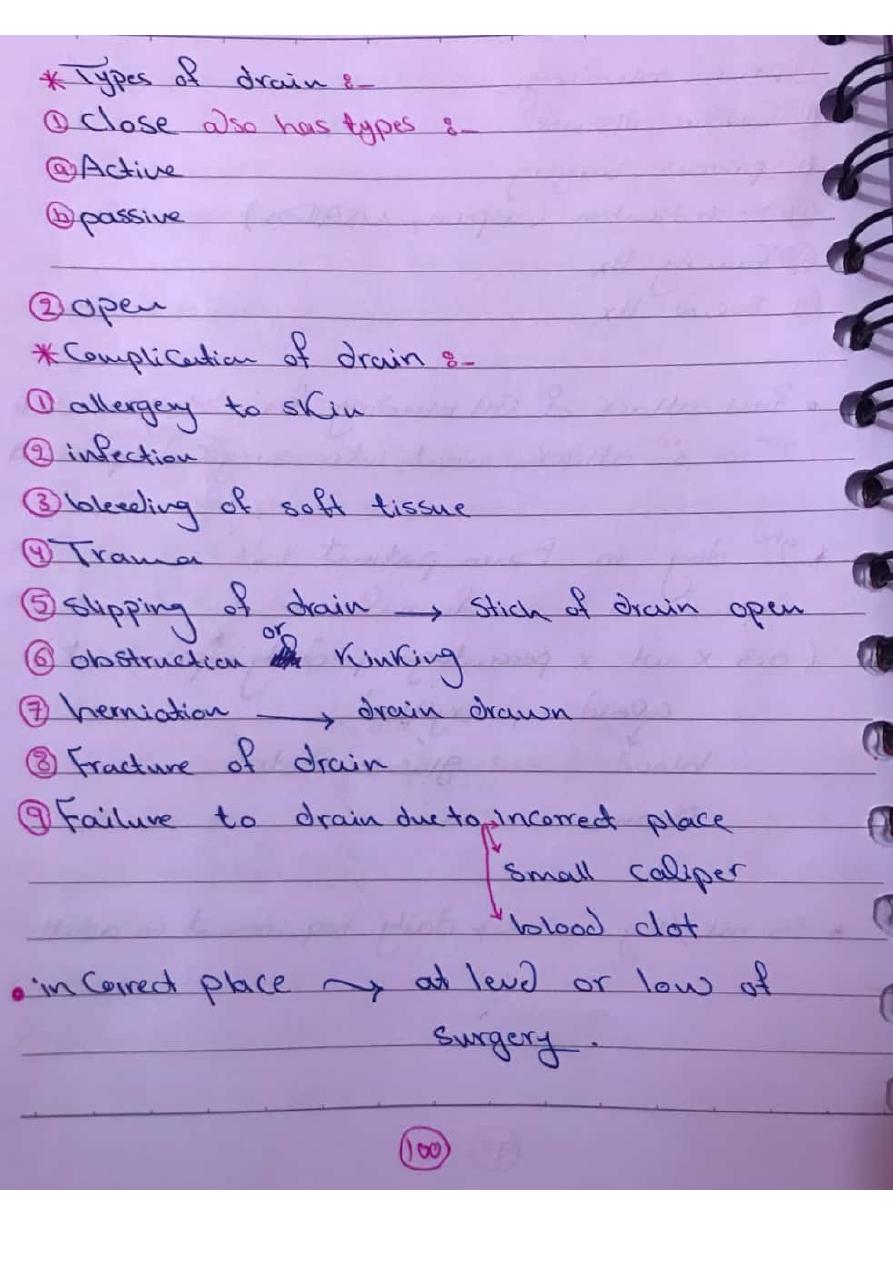 * Types of drain :-
① close also has types :-
ⓐ Active
ⓑ passive
② open
* Complication of drain :-
① allergery to skin
② infection
③ bleeding of soft tissue
④ Trama
⑤ Slipping of drain → stich of drain open
⑥ obstruction or Kinking
⑦ herniation → drain drawn
⑧ Fracture of drain
⑨ Failure to drain due to → incorrect place
→ small caliper
→ blood clot
• in Correct place → at level or low of
surgery.
100